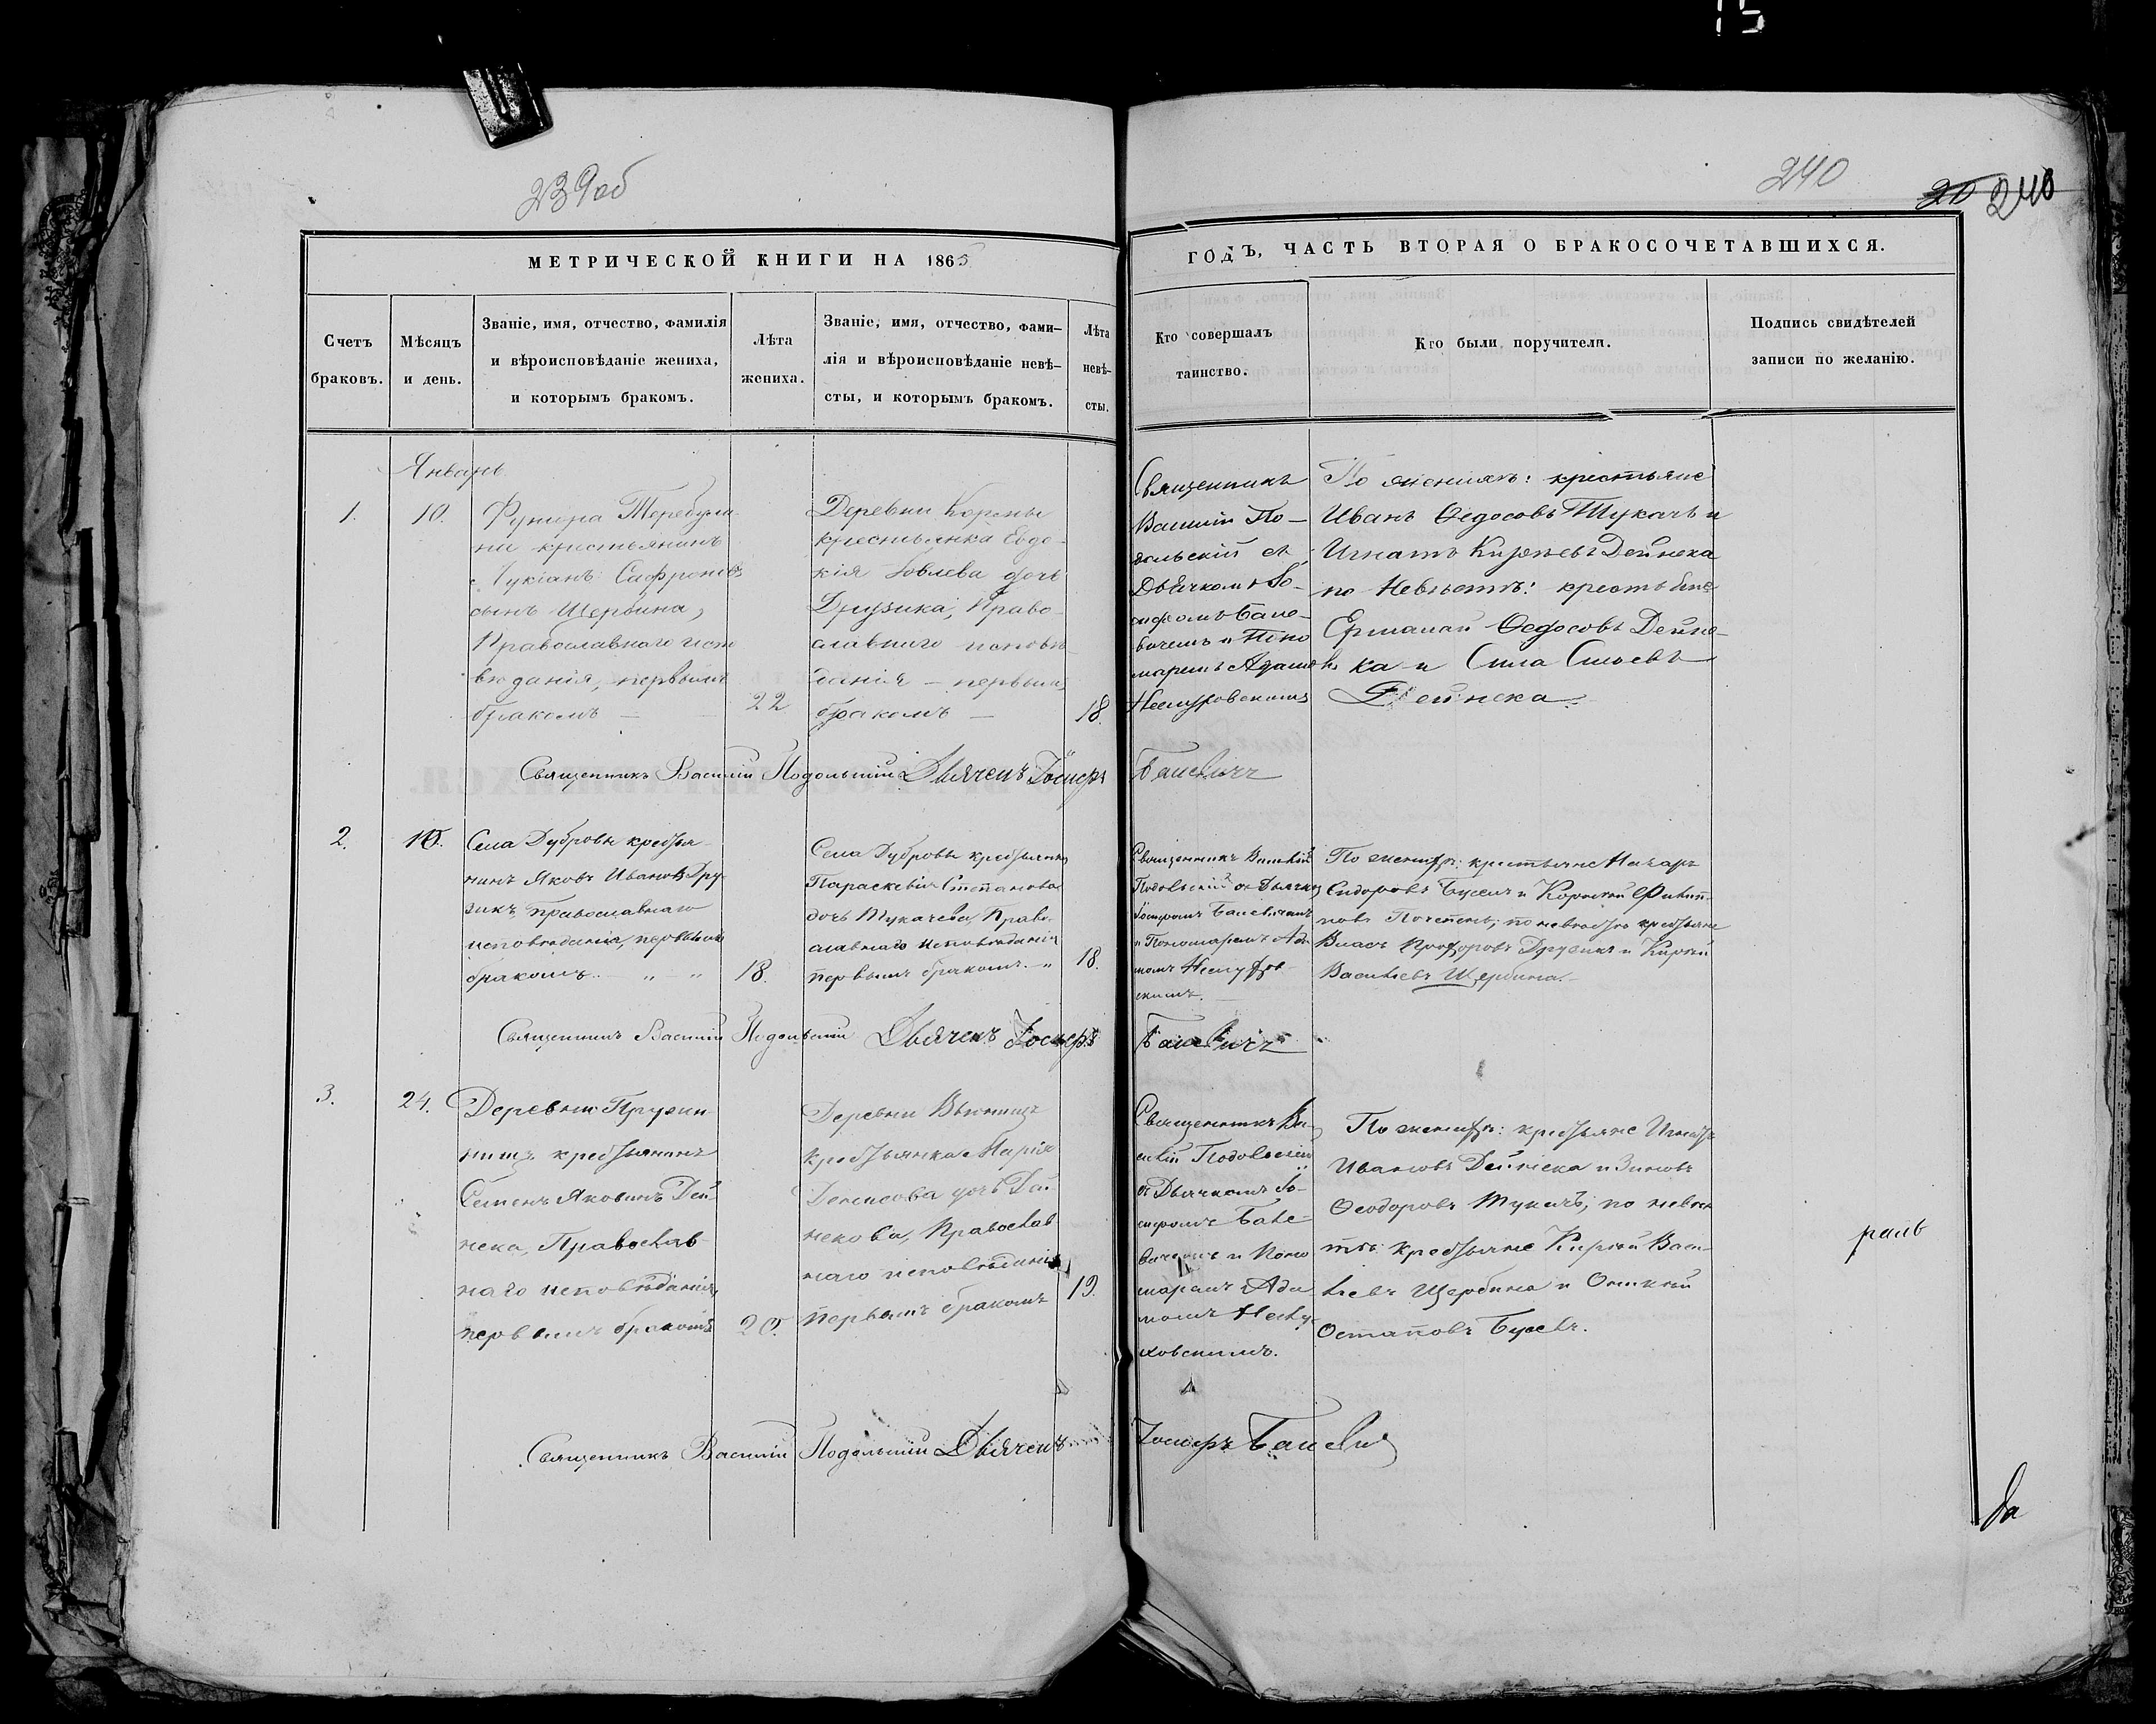 15
239об
240
20 240
МЕТРИЧЕСКОЙ КНИГИ НА 1865
ГОДЪ, ЧАСТЬ ВТОРАЯ О БРАКОСОЧЕТАВШИХСЯ.
Счетъ
браковъ.
Мѣсяцъ
и день.
Званіе, имя, отчество, фамилія
и вѣроисповѣданіе жениха,
и которымъ бракомъ.
Лѣта
жениха.
Званіе, имя, отчество, фами-
лія и вѣроисповѣданіе невѣ-
сты, и которымъ бракомъ.
Лѣта
невѣ-
сты.
Кто совершалъ
таинство.
Кто были поручители.
Подпись свидѣтелей
записи по желанію.
Январь
1.
10.
крестьянинъ
Сафроновъ
сынъ Щербина,
Православнаго испо
вѣданія, первымъ
бракомъ —
22
Деревни
крестьянка Евдо-
кія Іовлева дочь
Друзика, Право-
славнаго исповѣ-
данія — первымъ
бракомъ —
18.
Священникъ
Василій По-
дольскій съ
Дьячкомъ Іо-
сифомъ Бале-
вичемъ и Поно
маремъ Адамомъ
По женихѣ: крестьяне
Иванъ Ѳедосовъ Тукачъ и
Игнатъ Киреевъ Дейнека
по Невѣстѣ: крестьяне
Ермолай Ѳедосовъ Дейне-
ка и Сила
Дейнека.
Священникъ Василій Подольскій Дьячекъ Іосифъ
Балевичъ
2.
10.
Села Дубровы крестья-
нинъ Яковъ Ивановъ Дру-
зикъ, православнаго
исповѣданія, первымъ
бракомъ. — „ — „
18.
Села Дубровы крестьянка
Параскевія Степанова
дочь Тукачева, Право-
славнаго исповѣданія
первымъ бракомъ. — „
18.
Священникъ Василій
Подольскій съ Дьячкомъ
Іосифомъ Балевичемъ
и Пономаремъ Ада-
момъ
скимъ.
По женихѣ: крестьяне Назаръ
Сидоровъ и Корнилій Филип-
повъ по невѣстѣ крестьяне
Власъ Прохоровъ Друзикъ и Кирилъ
Васильевъ Щербина.
Священникъ Василій Подольскій Дьячекъ Іосифъ
Балевичъ
3.
24.
Деревни Прузки
нищъ крестьянинъ
Семенъ Яковинъ Дей-
нека, Православ-
наго исповѣданія,
первымъ бракомъ
20.
Деревни
крестьянка Марія
Денисова дочь Дей
некова, Православ
наго исповѣданія
первымъ бракомъ
19.
Священникъ Ва-
силій Подольскій
съ Дьячкомъ Іо-
сифомъ Бале-
вичемъ и Поно
маремъ Ада
момъ
ховскимъ.
По женихѣ: крестьяне Игнатъ
Ивановъ Дейнека и Зиновъ
Ѳеодоровъ Тукачъ; по невѣс
тѣ: крестьяне Кирилъ Васи-
льевъ Щербина и
Остаповъ
Священникъ Василій Подольскій Дьячекъ
Іосифъ Балевичъ